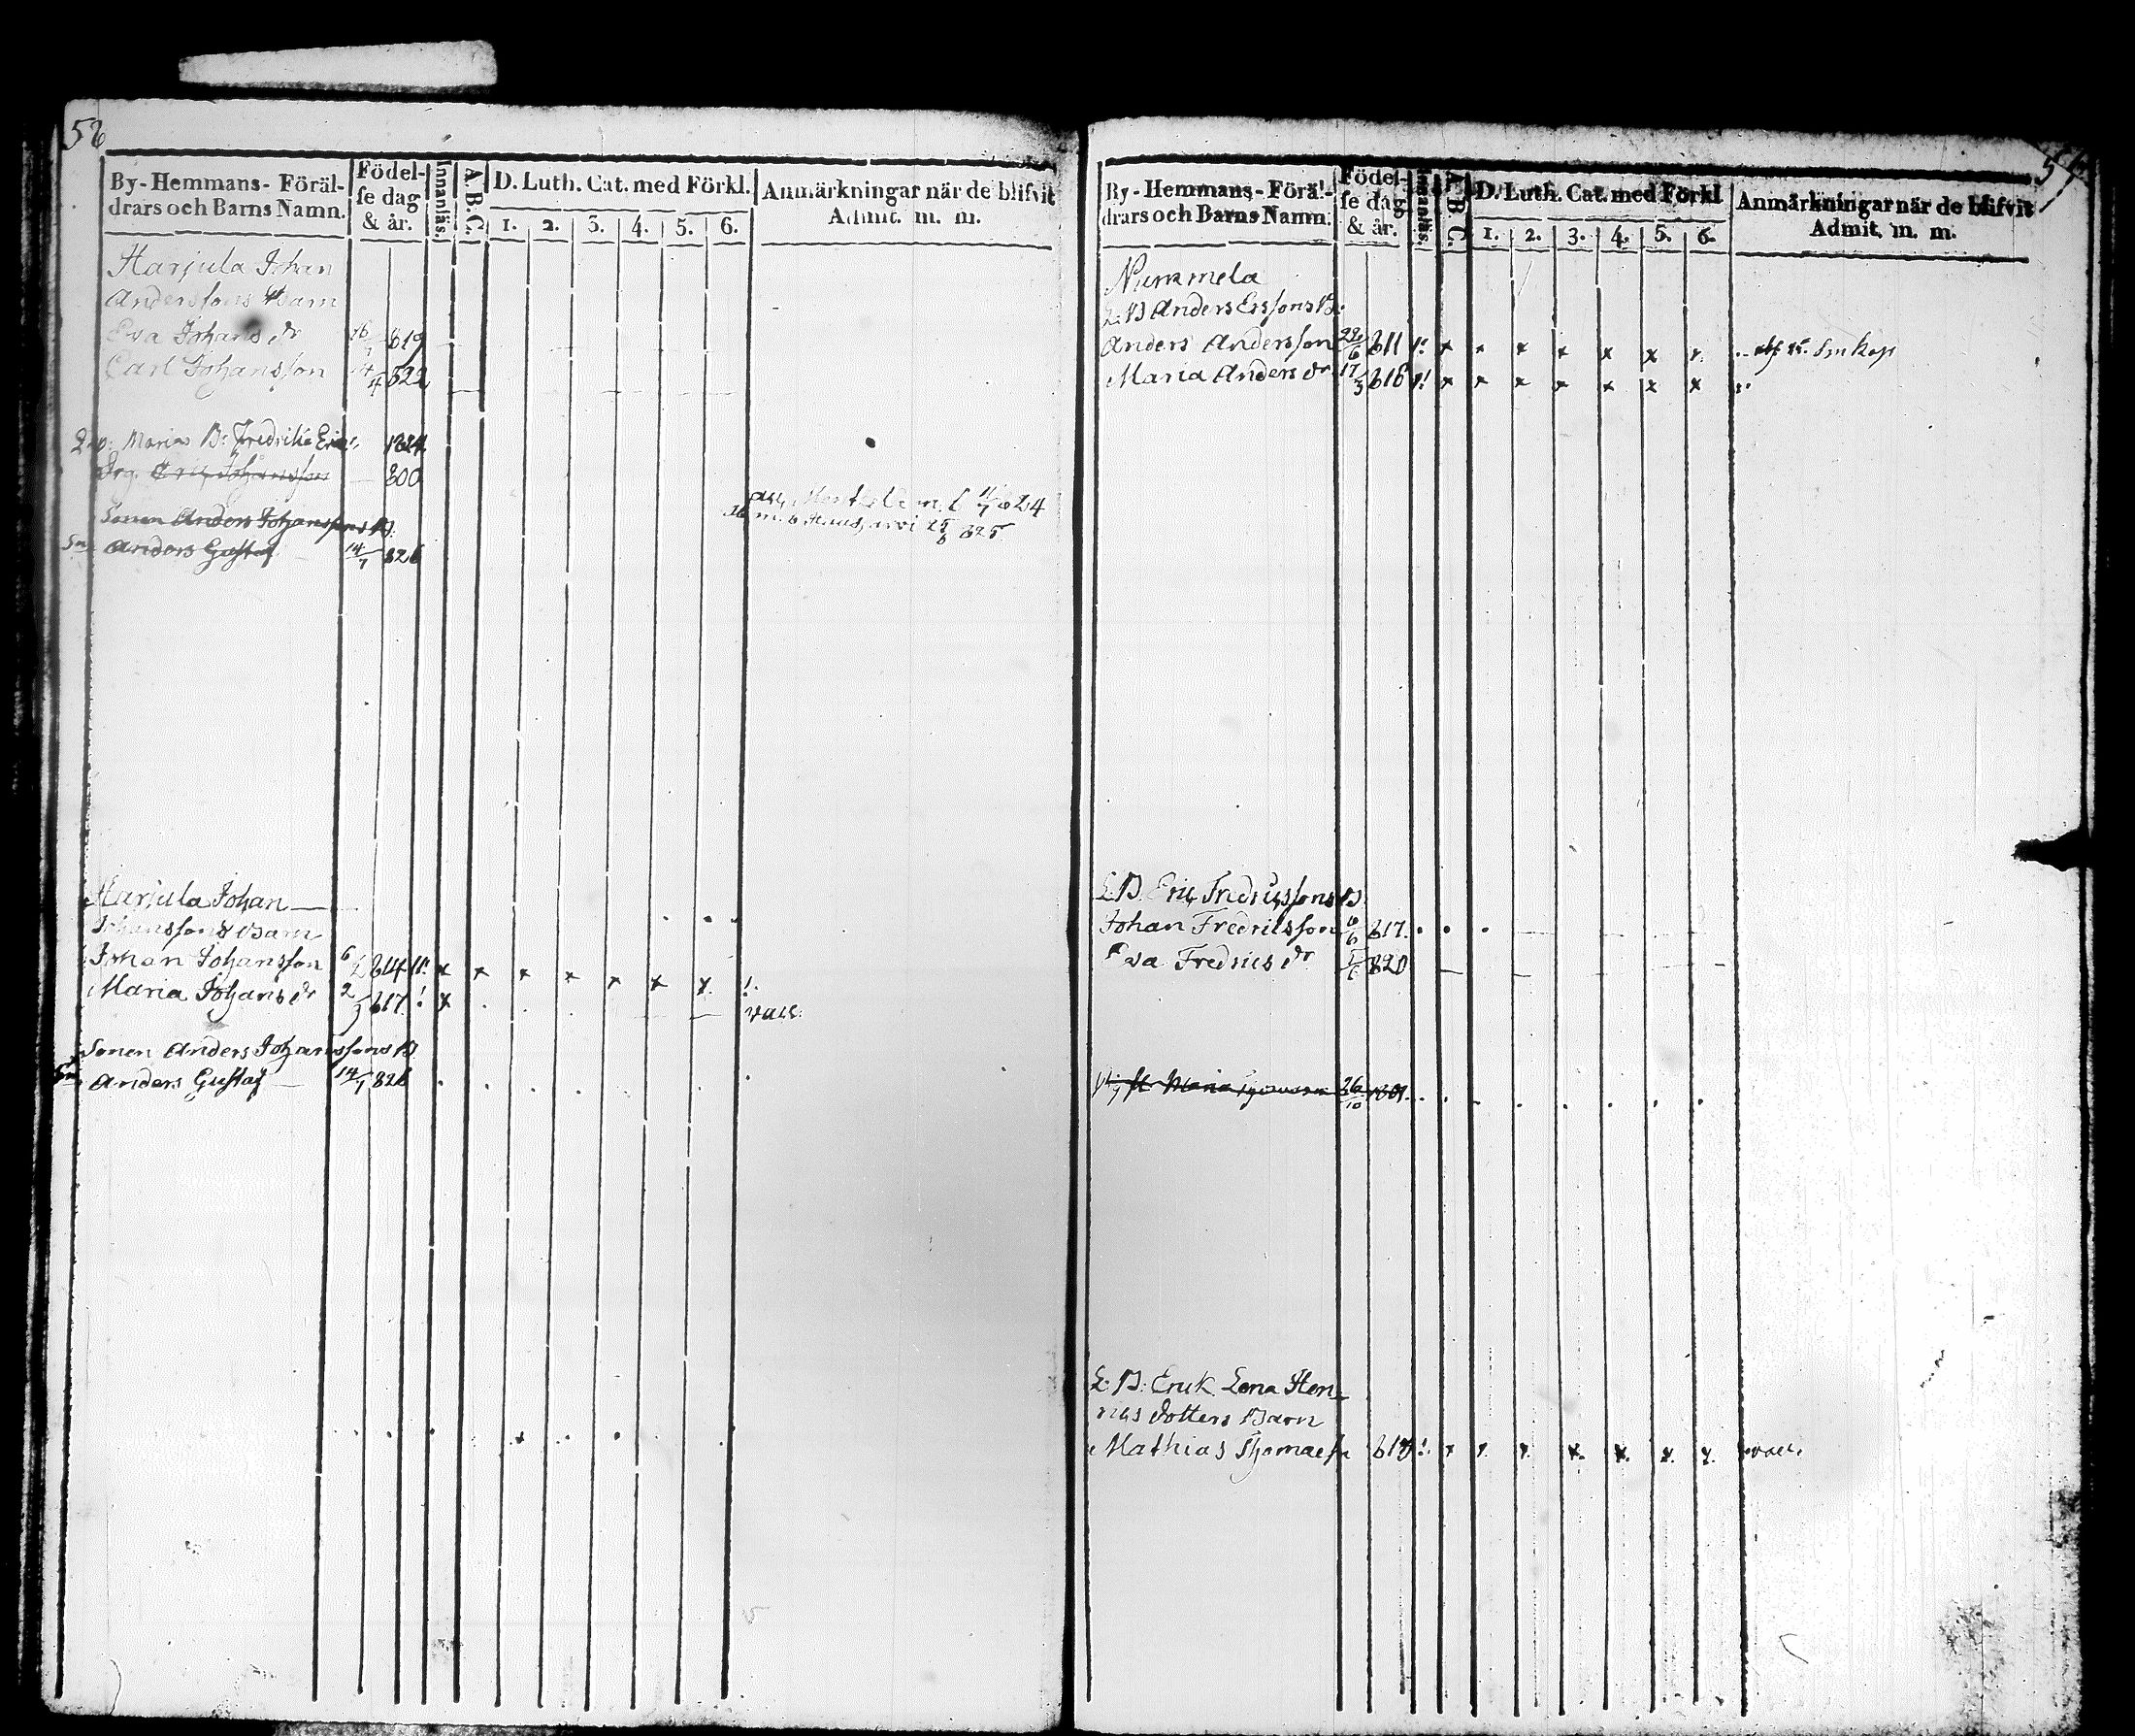 56
By- Hemmans- Föräl-
drars och Barns Namn.
Födel-
se dag
& år.
Innanläs.
A. B. C.
D. Luth. Cat. med Förkl.
1. 2. 3. 4. 5. 6.
Anmärkningar när de blifvit
Admit. m. m.
Harjula Johan
Anderssons Barn
Eva Johans dr 16/7 819
Carl Johansson 14/4 822
Marias B: Fredrika 1824
Drg. Eric Johansson 800
Sonen Anders Johanssons B.
Sns Anders Gustaf 14/7 826
Harjula Johan
Johanssons Barn
Johan Johansson 6/2 814
Maria Johans dr 2/3 817 ! x vacc.
Sonen Anders Johanssons B
Sns Anders Gustaf 14/7 826
57
By- Hemmans- Föräl-
drars och Barns Namn.
Födel-
se dag
& år.
Innanläs.
A. B. C.
D. Luth. Cat. med Förkl
1. 2. 3. 4. 5. 6.
Anmärkningar när de blifvit
Admit. m. m.
Nummela
L: B Anders Erssons B:
Anders Andersson 22/6 811 x x x x x x
Maria Anders dr 17/3 816 x x x x x x x
L: B. Eric Fredricssons B
Johan Fredricsson 6/6 817.
Eva Fredrics dr 820
Maria 26/10 1801.
L: B: Erik Lena Hen-
rics dotters Barn
Mathias Thomaess 818 vacc.